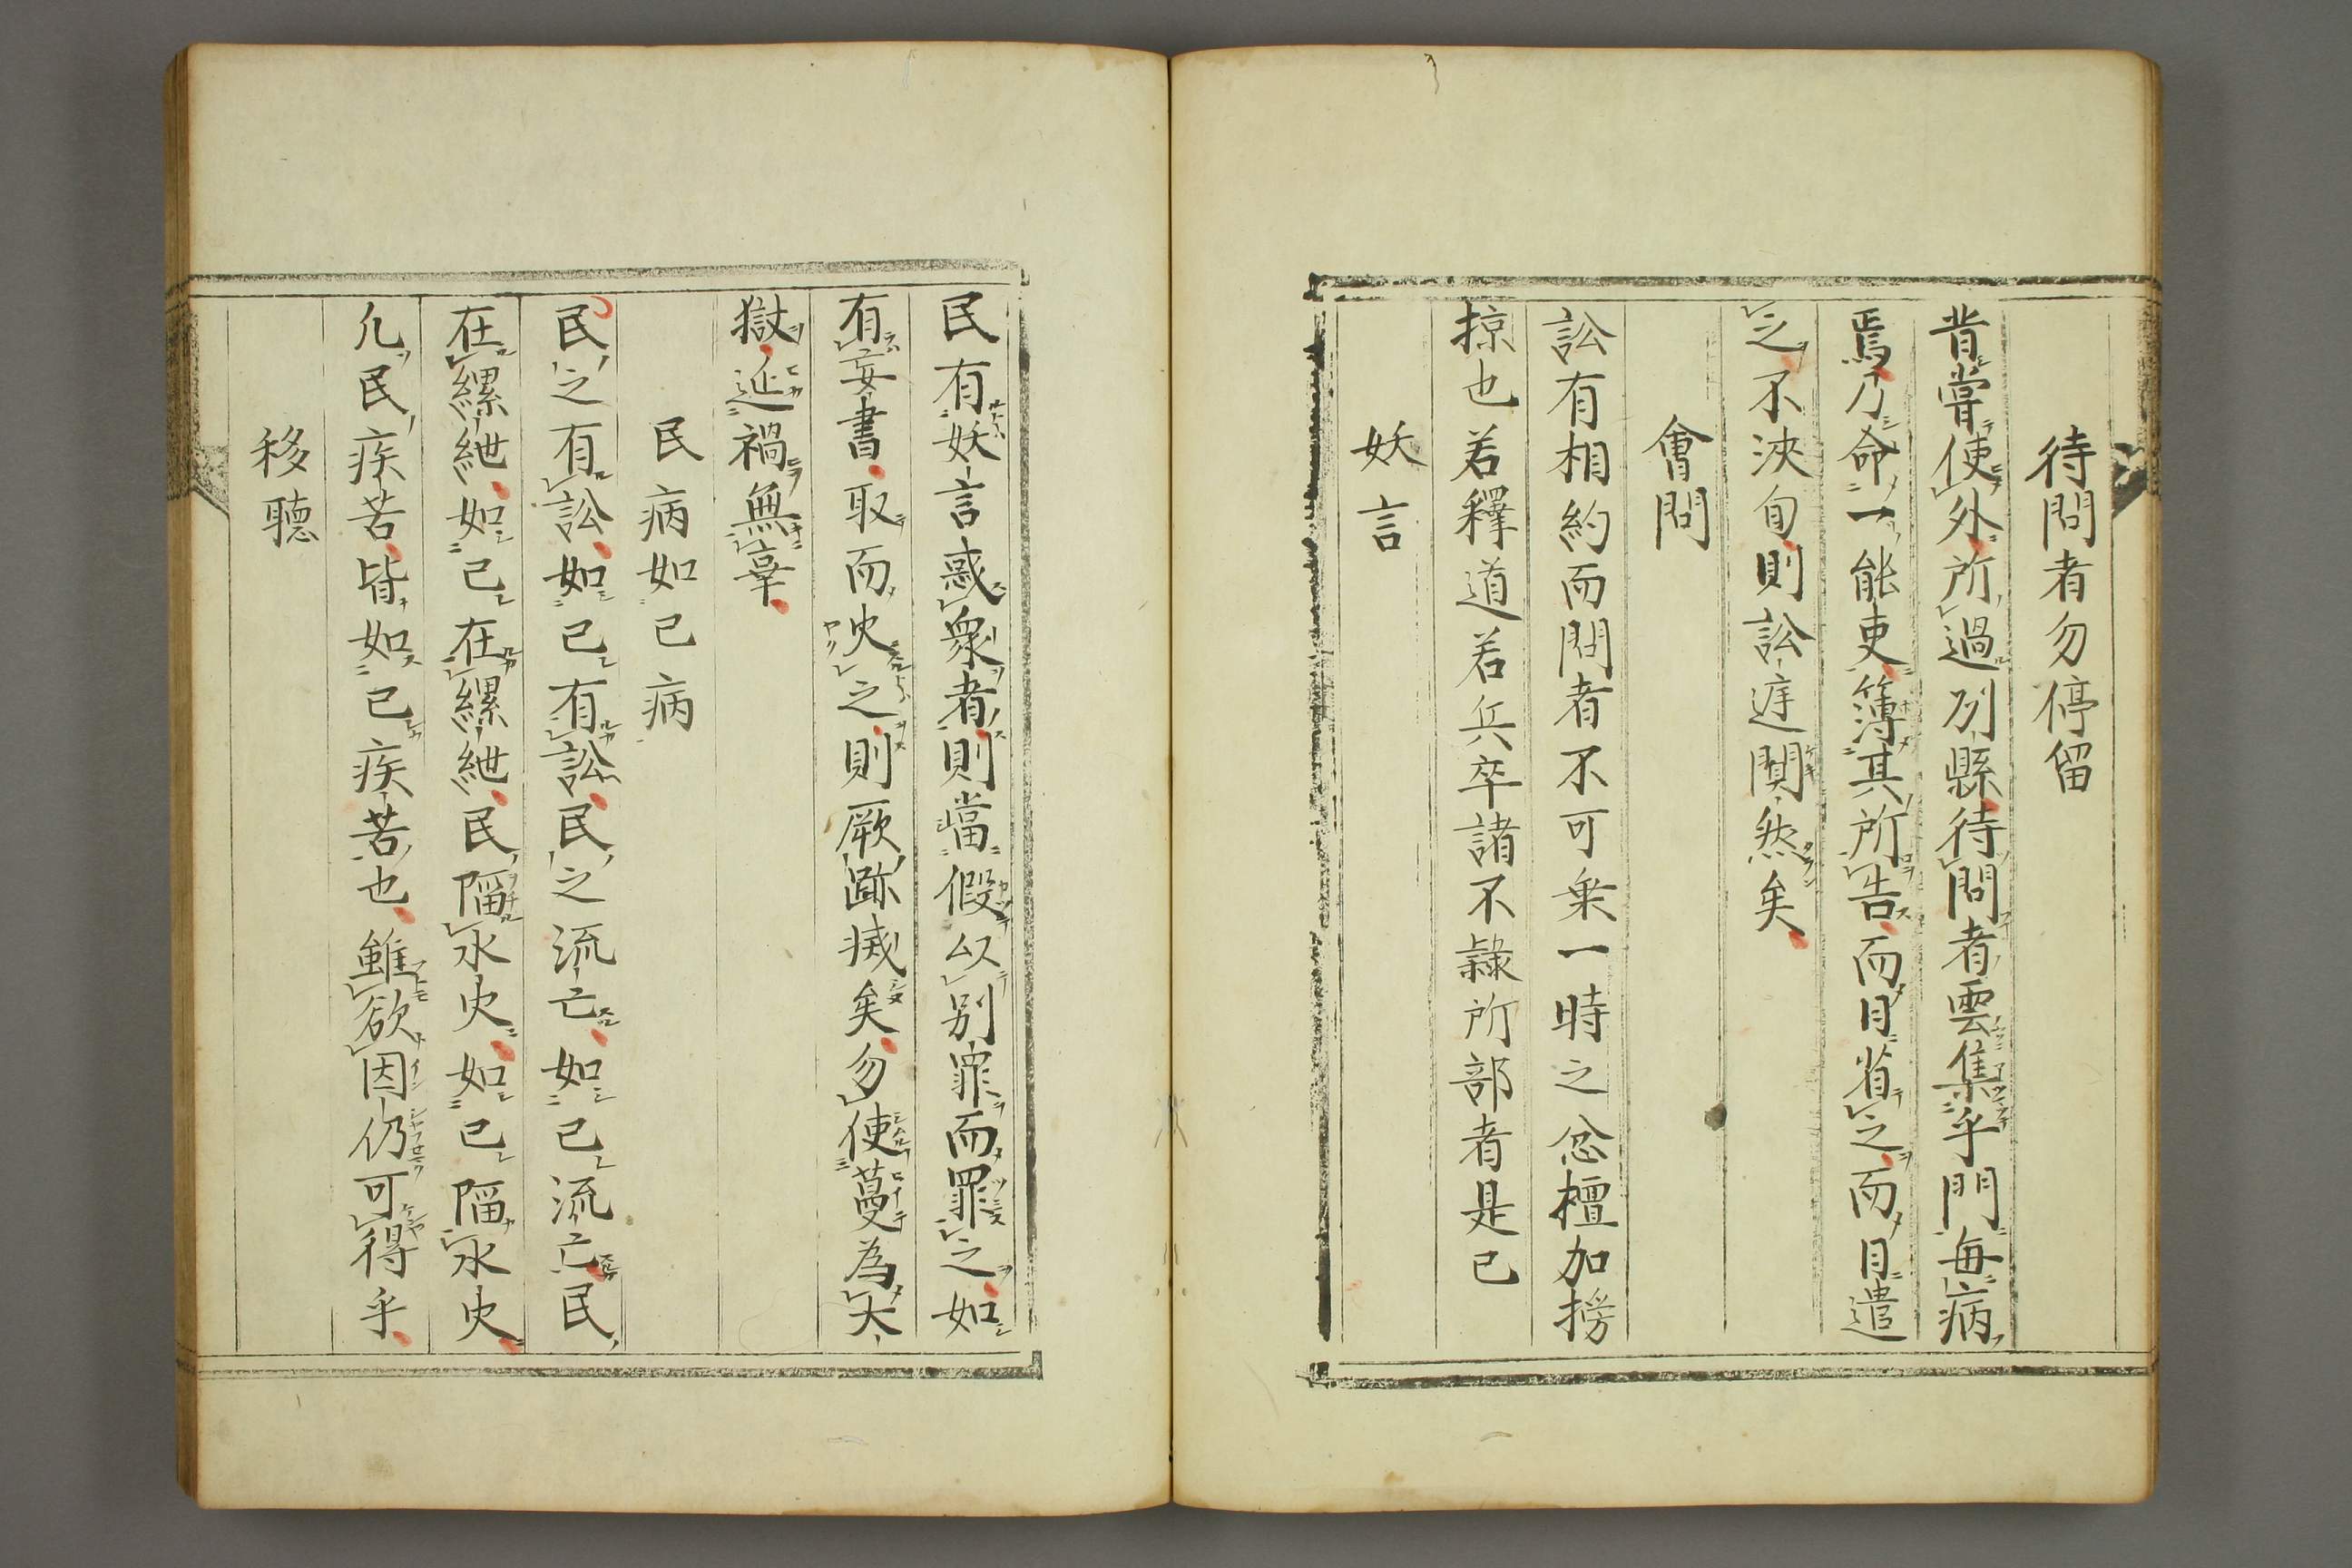 待問者勿停留
昔嘗使外所過列縣待問者雲集乎門毎病
焉乃命一能吏簿其所告而日省之而日遣
之不浹旬則訟庭闃然矣
會問
訟有相約而問者不可乗一時之忿檀加搒
掠也若釋道若兵卒諸不隷所部者是已
妖言
民有妖言惑衆者則當假以别罪而罪之如
有妄書取而火之則厥跡滅矣勿使蔓為大
獄延禍無辜
民病如已病
民之有訟如己有訟民之流亡如己流亡民
在縲紲如己在縲紲民陷水火如己陷水火
凢民疾苦皆如己疾苦也雖欲因仍可得乎
移聽